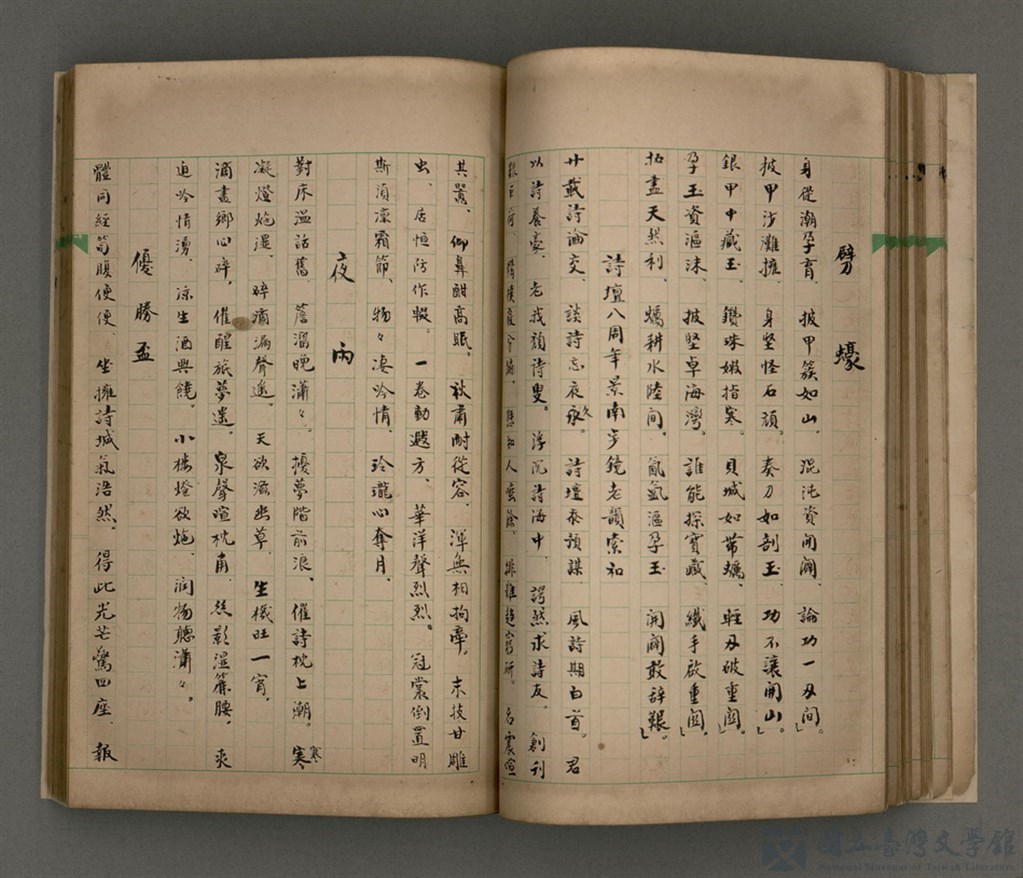 劈蠔
身從潮孕育、披甲簇如山、混沌資開闢、論功一刃間、
披甲沙灘擁、身堅怪石頑。奏刀如剖玉、功不讓開山。
銀甲中藏玉、鑽珠嫩指寒。貝城如帶蠣、輕刃破重関。
孕玉資漚沫、披堅卓海灣。誰能探寶藏、纖手啟重関。
拓盡天然利、蠣耕水陸間、氤氳漚孕玉、開闢敢辞艱。
詩壇八周年景南步鏡老韻索和
廿載詩論交、談詩忘夜永。久詩壇泰預謀、風詩期白首。君
以詩養豪、老我頑詩叟。浮沉詩海中、諤然求詩友、創刊
其罵、仰鼻酣高眠、秋肅耐從容、渾無相拘牽。末技甘雕
虫、居恒防作輟。一卷動遐方、華洋聲烈烈。冠裳倒置明
斯須凜霜節、物々凄吟情、玲瓏心奪月、
夜雨
對床温話舊、簷溜晚瀟々。擾夢階前浪、催詩枕上潮。寒寒
凝燈炧還、碎滴漏聲遙。天欲滋幽草、生機旺一宵、
滴盡鄉心碎、催醒旅夢遙。泉聲喧枕角、丝影湿簾腰、爽
迫吟情湧、凉生酒興饒。小楼燈欲炧、润物聽瀟々。
優勝盃
體同經笥腹便便、坐擁詩城氣浩然、得此光芒驚四座、報
國立臺灣文學館
National Museum of Taiwan Literature